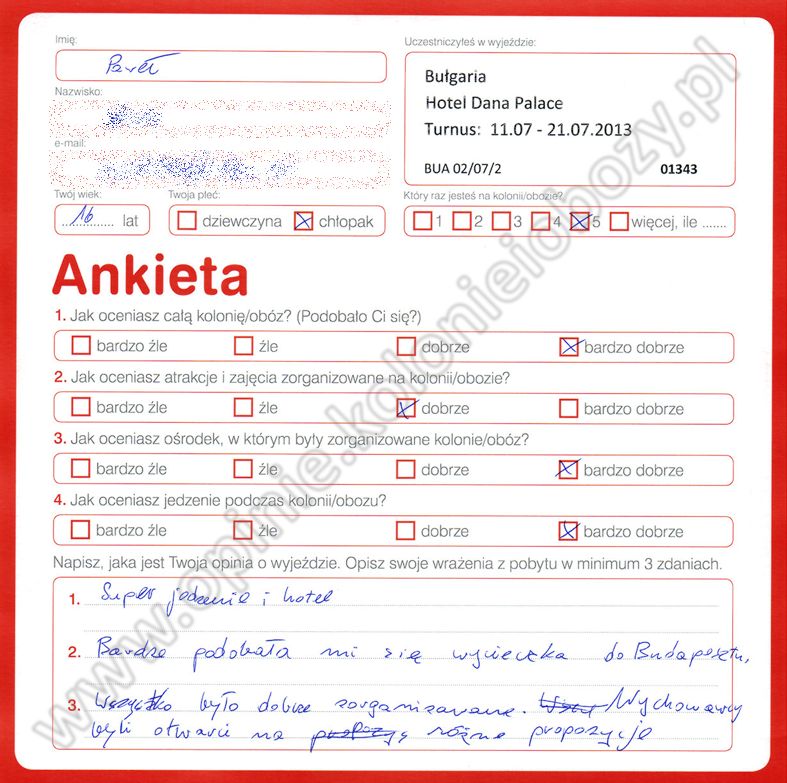 Imię:
Paweł
Nazwisko:
e-mail:
Uczestniczyłeś w wyjeździe:
Bułgaria
Hotel Dana Palace
Turnus: 11.07 - 21.07.2013
BUA 02/07/2 01343
Twój wiek: Twoja płeć: Który raz jesteś na kolonii/obozie?
16 lat dziewczyna chłopak 1 2 3 4 5 więcej, ile .......
Ankieta
1. Jak oceniasz całą kolonię/obóz? (Podobało Ci się?)
bardzo źle źle dobrze bardzo dobrze
2. Jak oceniasz atrakcje i zajęcia zorganizowane na kolonii/obozie?
bardzo źle źle dobrze bardzo dobrze
3. Jak oceniasz ośrodek, w którym były zorganizowane kolonie/obóz?
bardzo źle źle dobrze bardzo dobrze
4. Jak oceniasz jedzenie podczas kolonii/obozu?
bardzo źle źle dobrze bardzo dobrze
Napisz, jaka jest Twoja opinia o wyjeździe. Opisz swoje wrażenia z pobytu w minimum 3 zdaniach.
1. Super jedzenie i hotel
2. Bardzo podobała mi się wycieczka do Budapesztu,
3. Wszystko było dobrze zorganizowane. Wychowawcy
byli otwarci na różne propozycje
www.opinie.kolonieiobozy.pl